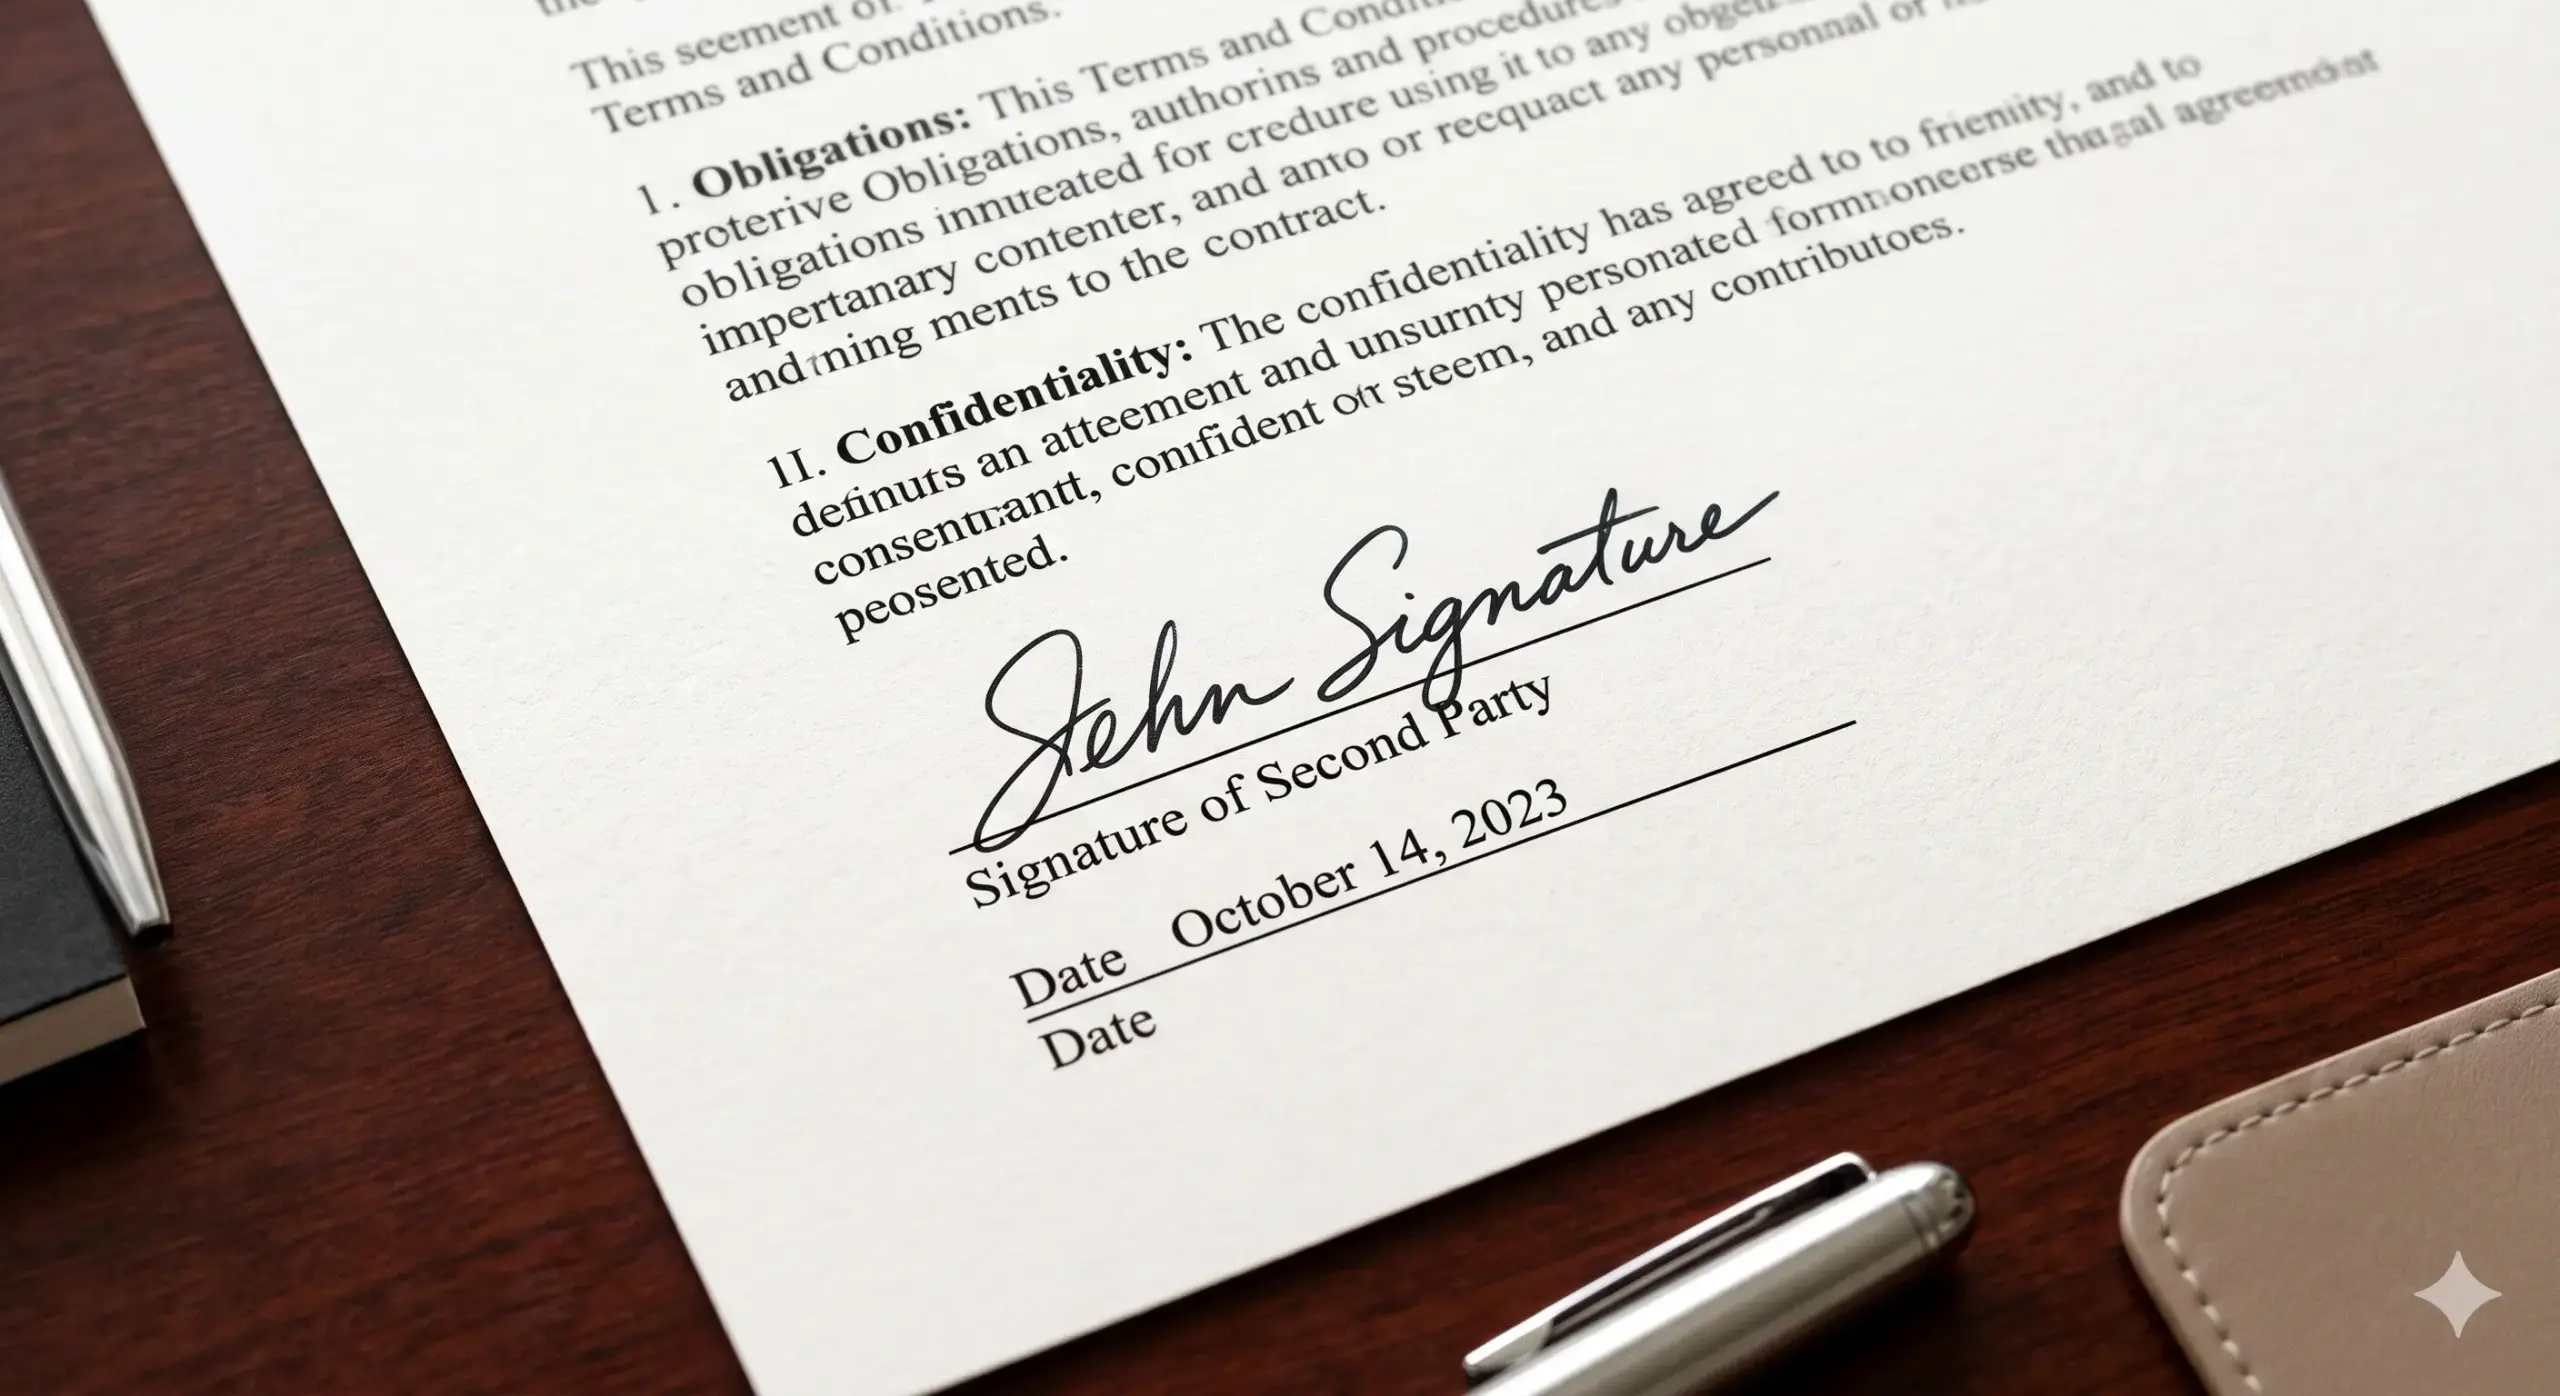 This seement of
Terms and Conditions.
1. Obligations: This Terms and
proterive Obligations, authorins and procedures
obligations innueated for credure using it to any
impertanary contenter, and anto or recquact any personnal or
ments to the contract.
1I. Confidentiality: The confidentiality has agreed to to frieniity, and to
definuts an atteement and unsurnty personated
confident steem, and any contributoes.
peosented.
John Signature
Signature of Second Party
Date October 14, 2023
Date